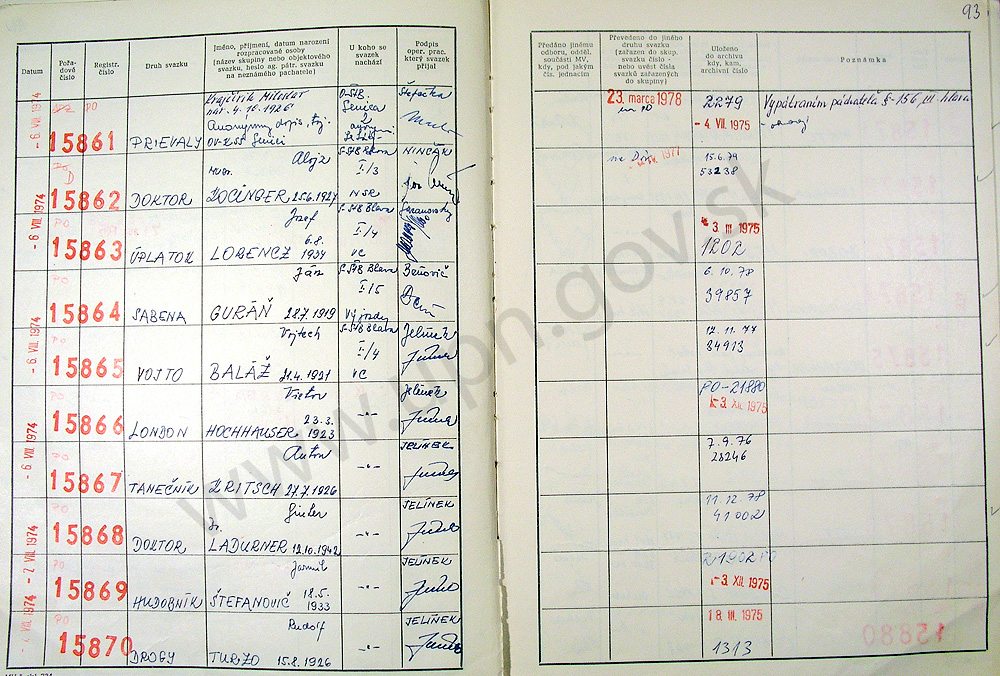 93
Datum
Pořadové číslo
Registr. číslo
Druh svazku
Jméno, příjmení, datum narození rozpracované osoby
(název skupiny nebo objektového svazku, heslo ag. pátr. svazku na neznámého pachatele)
U koho se svazek nachází
Podpis oper. prac. který svazek přijal
Předáno jinému odboru, odděl. součásti MV, kdy, pod jakým čís. jednacím
Převedeno do jiného druhu svazku (zařazen do skup. svazku číslo - nebo uvést čísla svazků zařazených do skupiny)
Uloženo do archivu kdy, kam, archivní číslo
Poznámka
- 6 VIII. 1974
PO
15861
PRIEVALY
nar. 4.10.1926
Anonymný dopis
Senica
23. marca 1978
2279
- 4. VII. 1975
Vypátraním páchateľa § 156, III. hlava
- 6 VIII. 1974
D
15862
DOKTOR
Alojz
KOCINGER 25.6.1927
I/3
NSR
NINČÁK
15.6.79
53238
PO
15863
ÚPLATOK
Jozef
LORENCZ 6.8. 1934
S-ŠtB Blava
I/4
VC
3 III 1975
1202
- 6 VIII. 1974
PO
15864
SABENA
Ján
GURÁŇ 28.7.1919
S-ŠtB Blava
I/5
Výjazdy
Beňovič
6.10.78
39857
- 6 VIII. 1974
PO
15865
VOJTO
Vojtech
BALÁŽ 21.4.1921
S-ŠtB Blava
I/4
VC
Jelínek
12.11.77
34913
15866
LONDON
Viktor
HOCHHAUSER 23.3. 1923
-"-
Jelínek
PO-21880
- 3. XII. 1975
- 6 VIII. 1974
PO
15867
TANEČNÍK
Anton
KRITSCH 27.7.1926
-"-
JELÍNEK
7.9.76
28246
PO
15868
DOKTOR
Dr. Günter
LADURNER 12.10.1942
-"-
JELÍNEK
11.12.78
41002
- 7. VIII. 1974
PO
15869
HUDOBNÍK
ŠTEFANOVIČ 18.5. 1933
-"-
JELÍNEK
- 3 XII. 1975
- 7. VIII. 1974
PO
15870
DROGY
Rudolf
TURZO 15.8.1926
-"-
JELÍNEK
18 III. 1975
1313
www.upn.gov.sk